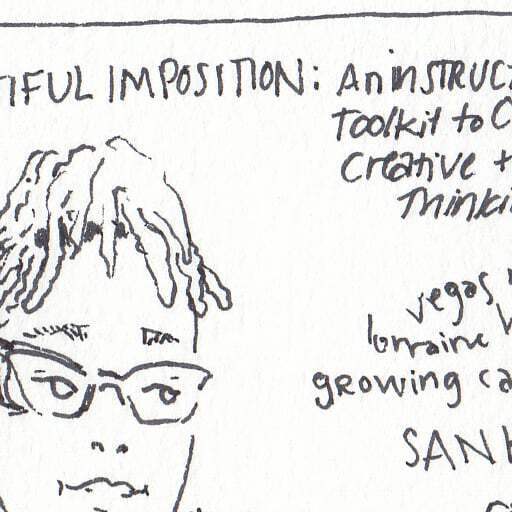 TIFUL IMPOSITION: An inSTRUCT
Toolkit to C
Creative +
Thinki
vegas
lorraine
growing ca
SAN